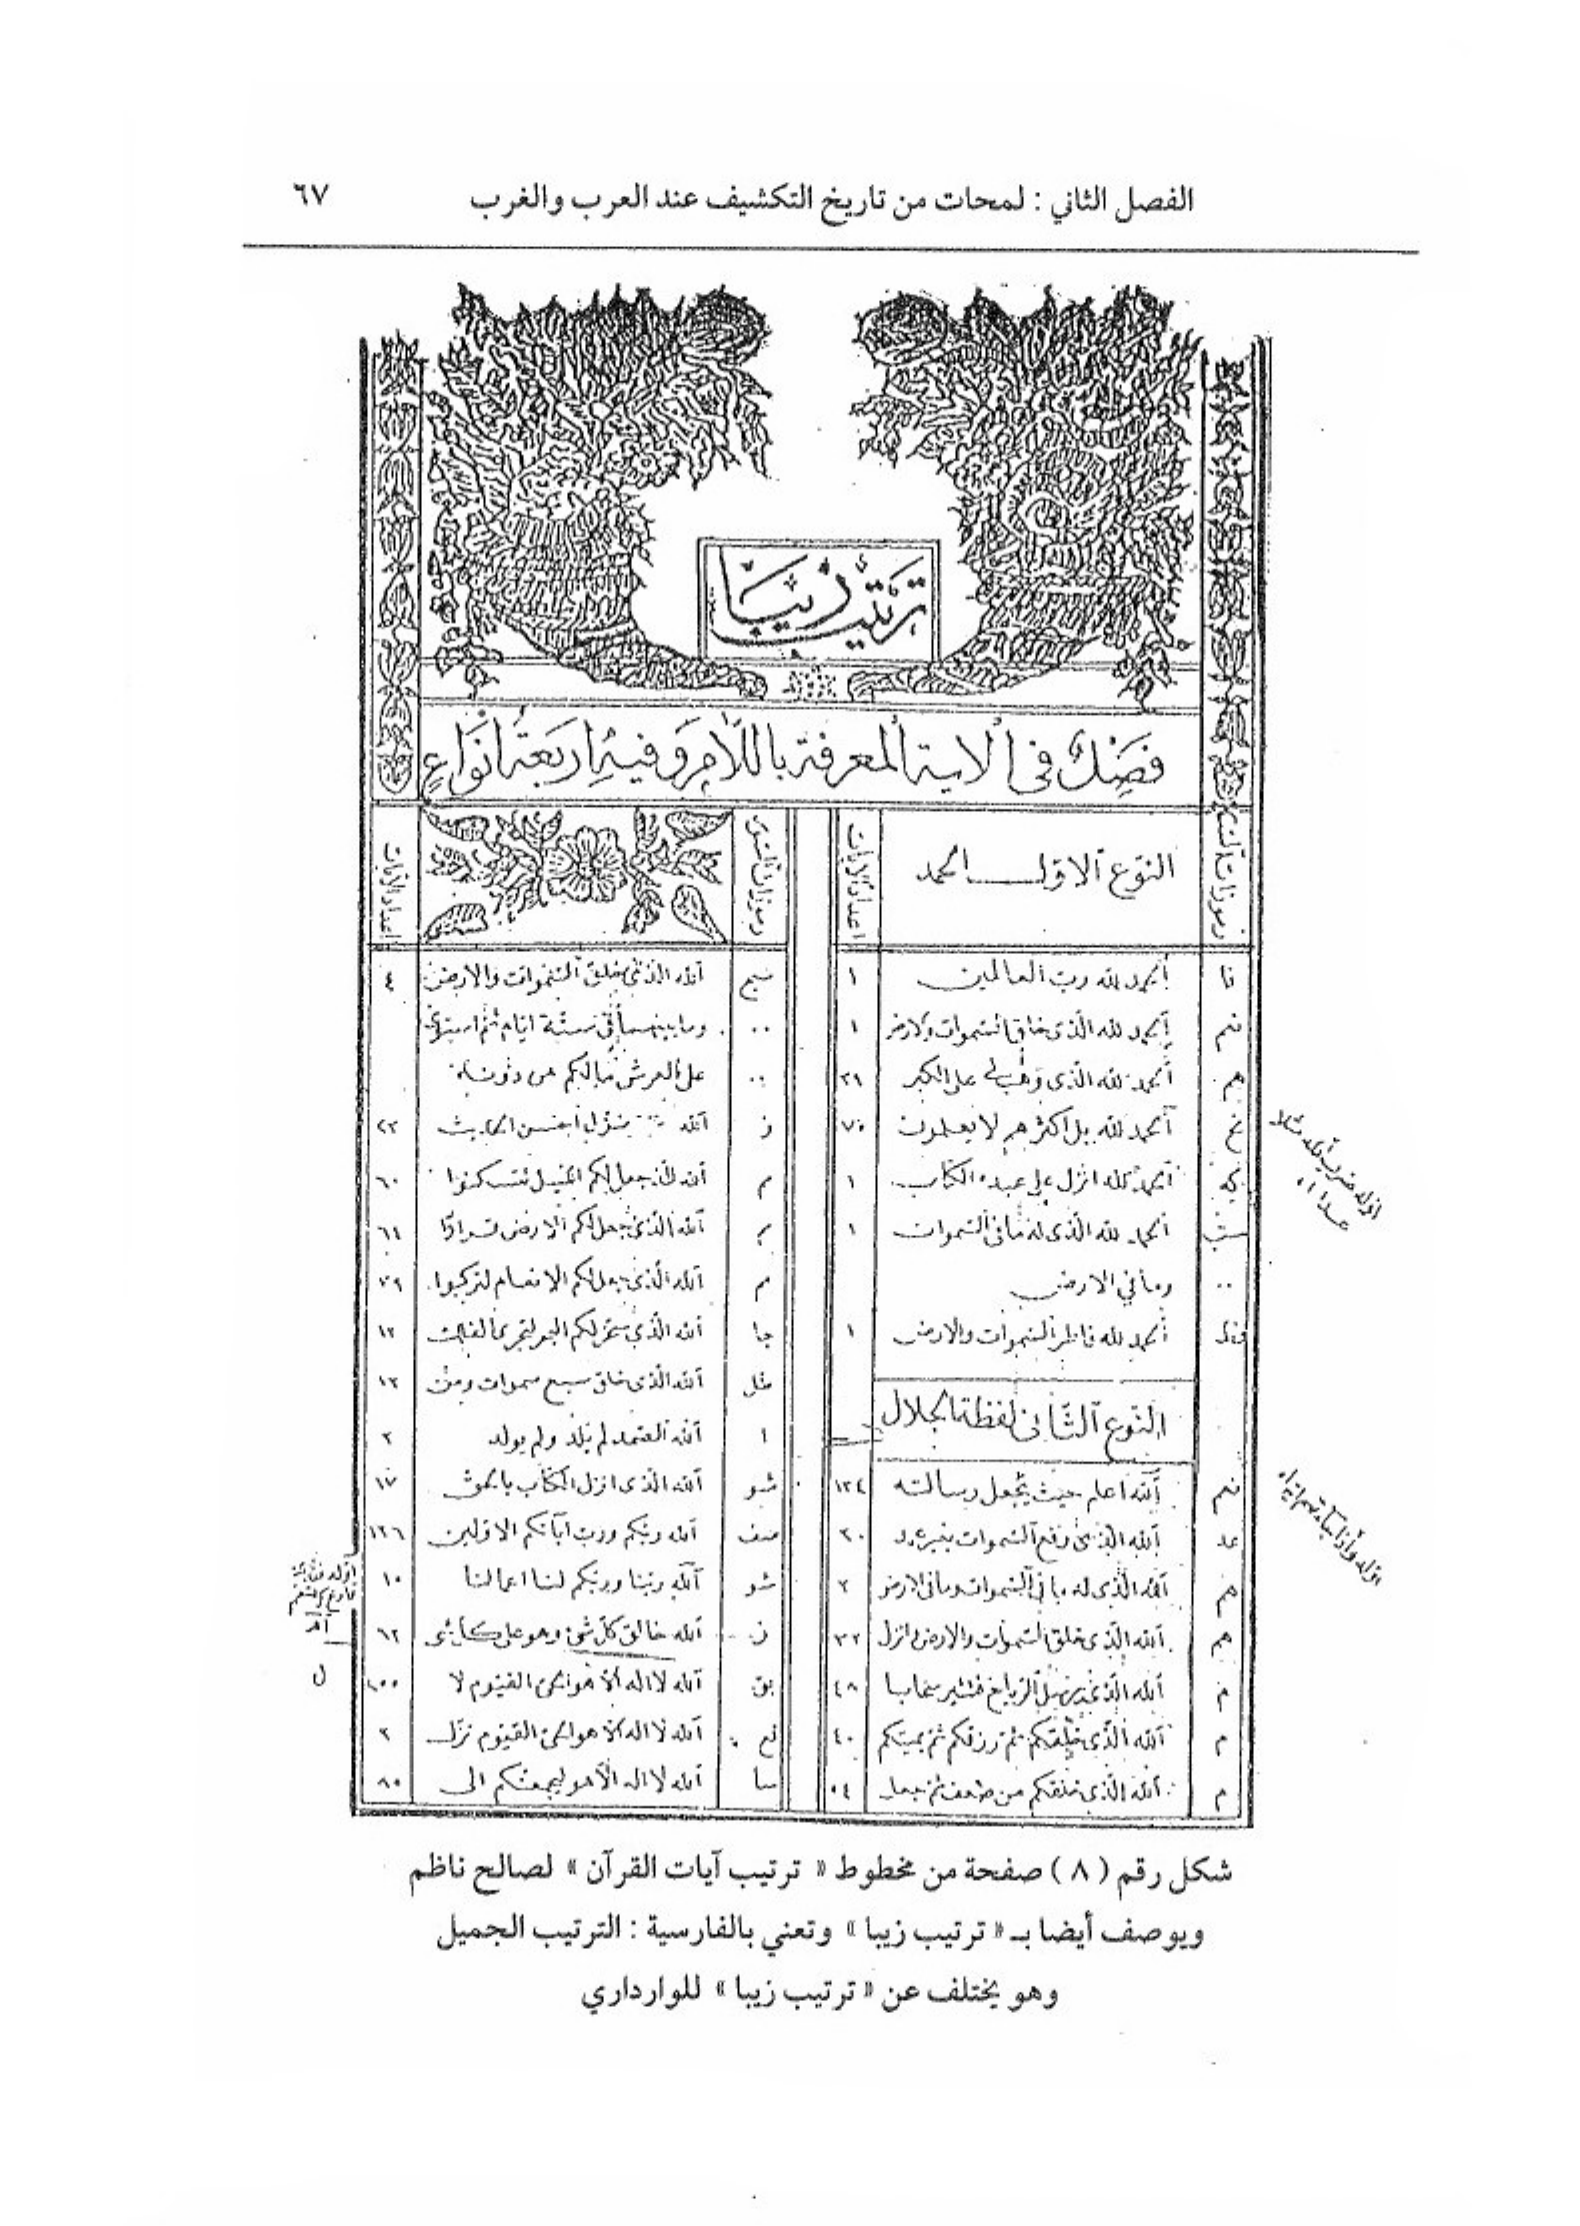 الفصل الثاني : لمحات من تاريخ التكشيف عند العرب والغرب ٦٧
ترتيب زيبا
فصل في الاية المعرفة باللام وفيه اربعة انواع
رموزات السور
النوع الاول الحمد
اعداد الآيات
فا الحمد لله رب العالمين ١
نم الحمد لله الذى خلق السموات والارض ١
هم الحمد لله الذى وهب لي على الكبر ٣٩
الحمد لله بل اكثرهم لا يعلمون ٧٠
كه الحمد لله انزل على عبده الكتاب ١
الحمد لله الذى له ما في السموات ١
.. وما في الارض
الحمد لله فاطر السموات والارض ١
النوع الثاني لفظة الجلال
نم الله اعلم حيث يجعل رسالته ١٢٤
عد الله الذى رفع السموات بغير عمد ٢٠
هم الله الذى له ما في السموات وما في الارض ٢
هم الله الذى خلق السموات والارض وانزل ٣٢
م الله الذى يرسل الرياح فتثير سحابا ٤٨
م الله الذى خلقكم ثم رزقكم ثم يميتكم ٤٠
م الله الذى خلقكم من ضعف ثم جعل ٥٤
رموزات السور
اعداد الايات
سج الله الذى خلق السموات والارض ٤
.. وما بينهما في ستة ايام ثم استوى
.. على العرش ما لكم من دونه
ز الله نزل احسن الحديث ٢٣
م الله الذى جعل لكم الليل لتسكنوا ٦٠
م الله الذى جعل لكم الارض قرارا ٦٤
م الله الذى جعل لكم الانعام لتركبوا ٧٩
جا الله الذى سخر لكم البحر لتجرى الفلك ١٢
طل الله الذى خلق سبع سموات ومن ١٢
ا الله الصمد لم يلد ولم يولد ٢
شو الله الذى انزل الكتاب بالحق ١٧
صف الله ربكم ورب آبائكم الاولين ١٢٦
شو الله ربنا وربكم لنا اعمالنا ١٥
ز الله خالق كل شئ وهو على كل شئ ٦٢
بق الله لا اله الا هو الحى القيوم لا ٢٥٥
الله لا اله الا هو الحى القيوم نزل ٢
نسا الله لا اله الا هو ليجمعنكم الى ٨٥
شكل رقم ( ٨ ) صفحة من مخطوط « ترتيب آيات القرآن » لصالح ناظم
ويوصف أيضا بـ « ترتيب زيبا » وتعني بالفارسية : الترتيب الجميل
وهو يختلف عن « ترتيب زيبا » للوارداري